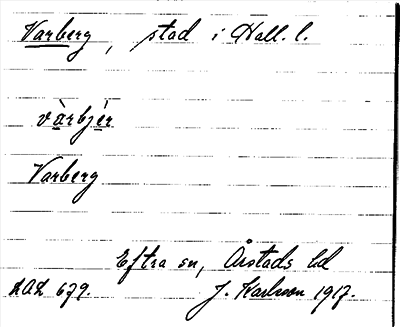 Varberg, stad i Hall. l.
värbjér
Varberg
Eftra sn, Årstads hd
LAL 679. J. Karlsson 1917.